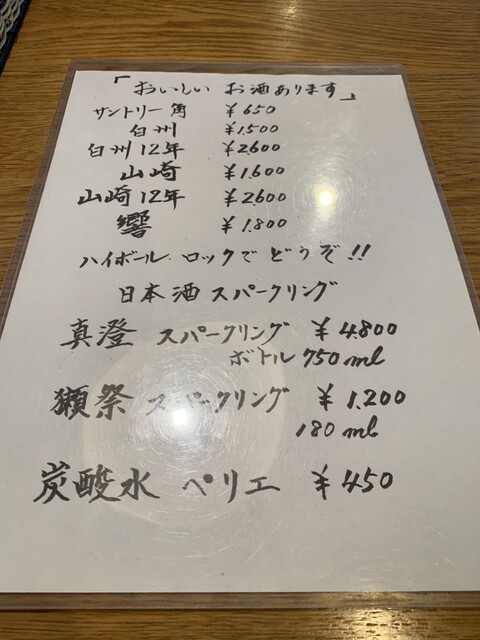 「おいしい お酒あります」
サントリー角 ¥650
白州 ¥1,500
白州12年 ¥2,600
山崎 ¥1,600
山崎12年 ¥2,600
響 ¥1,800
ハイボール、ロックでどうぞ!!
日本酒スパークリング
真澄 スパークリング ¥4,800
ボトル750ml
獺祭 スパークリング ¥1,200
180ml
炭酸水 ペリエ ¥450